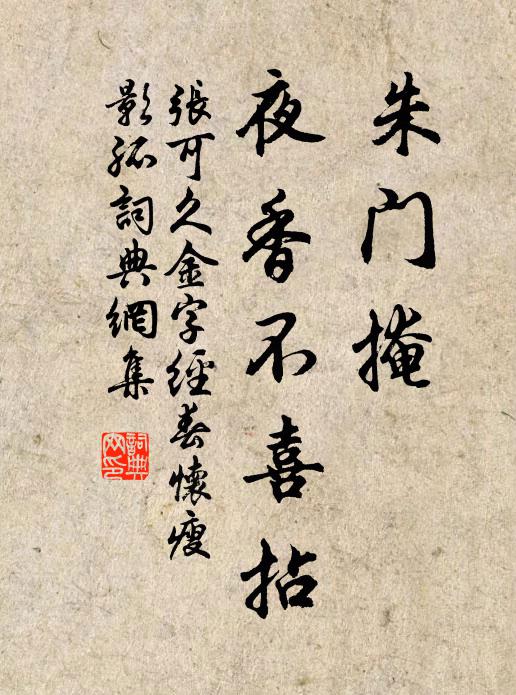 朱门掩
夜香不喜拈
張可久金字經春懷瘦
影孤詞典網集
詞典
网印